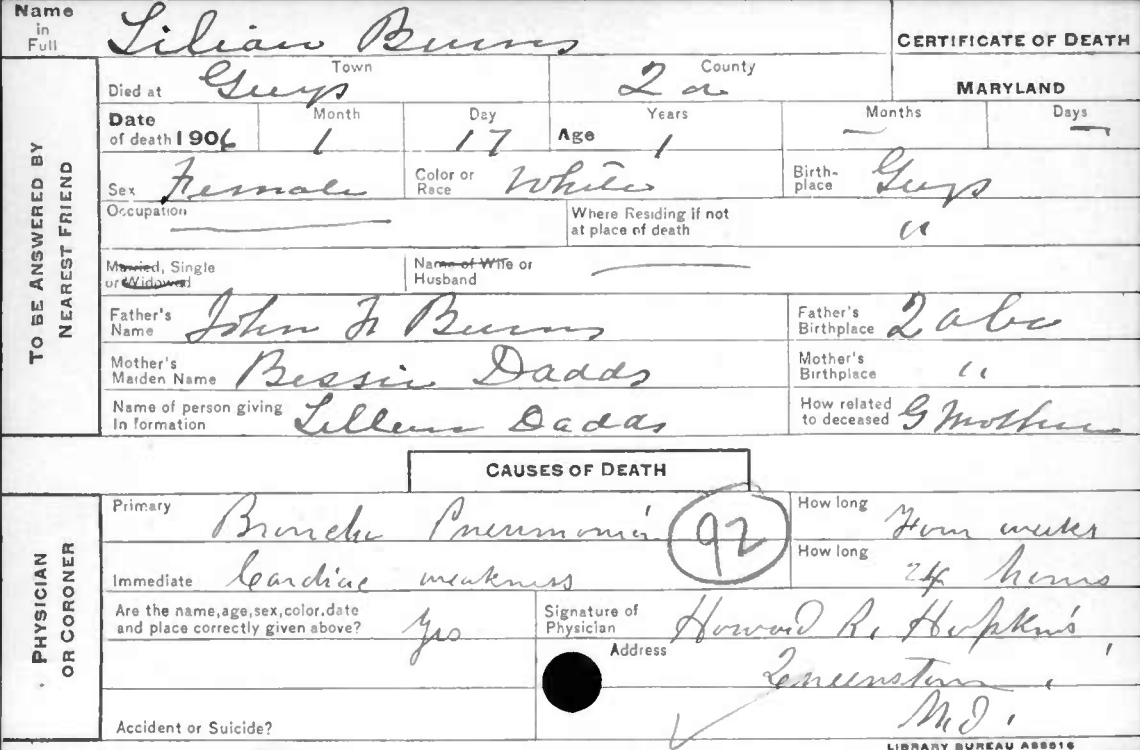 Name in Full Lilian Burns
CERTIFICATE OF DEATH
MARYLAND
TO BE ANSWERED BY NEAREST FRIEND
Died at Town Guys County 2 a
Date of death 1906 Month 1 Day 17 Age Years 1 Months — Days —
Sex Female Color or Race White Birth-place Guys
Occupation — Where Residing if not at place of death "
Married, Single or Widowed Name of Wife or Husband —
Father's Name John F Burns Father's Birthplace 2 a Co
Mother's Maiden Name Bessie Dadds Mother's Birthplace "
Name of person giving In formation Dadds How related to deceased G Mother
CAUSES OF DEATH
PHYSICIAN OR CORONER
Primary Broncho Pneumonia 92 How long Four weeks
Immediate Cardiac weakness How long 24 hours
Are the name,age,sex,color,date and place correctly given above? Yes Signature of Physician Howard R. Hopkins
Address Queenstown,
Accident or Suicide? Md.
LIBRARY BUREAU